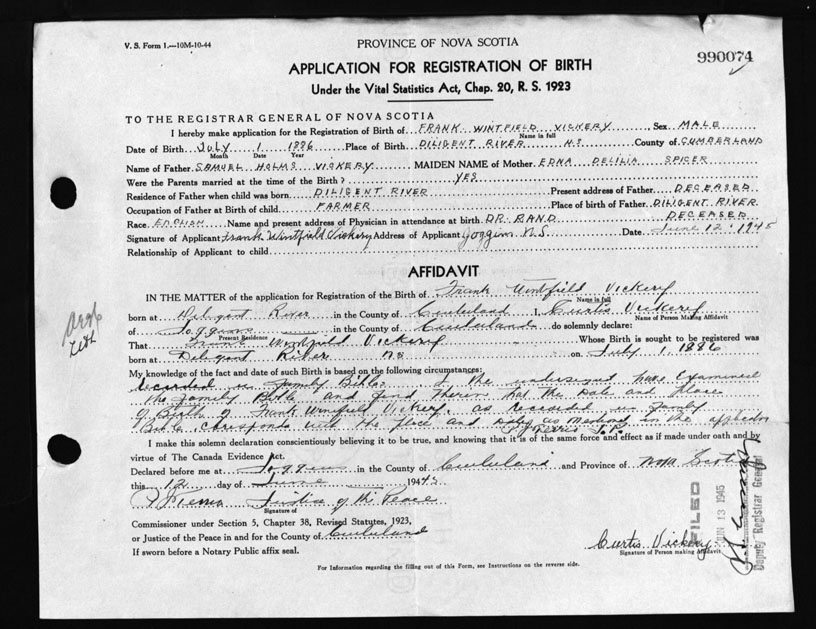 V. S. Form 1.—10M-10-44
PROVINCE OF NOVA SCOTIA
990074
APPLICATION FOR REGISTRATION OF BIRTH
Under the Vital Statistics Act, Chap. 20, R. S. 1923
TO THE REGISTRAR GENERAL OF NOVA SCOTIA
I hereby make application for the Registration of Birth of FRANK WINTFIELD VICKERY Sex MALE
Name in full
Date of Birth JULY 1 1886 Place of Birth DILIGENT RIVER N.S County of CUMBERLAND
Month Date Year
Name of Father SAMUEL HOLMS VICKERY MAIDEN NAME of Mother EDNA DELILIA SPICER
Were the Parents married at the time of the Birth? YES
Residence of Father when child was born DILIGENT RIVER Present address of Father DECEASED
Occupation of Father at Birth of child FARMER Place of birth of Father DILIGENT RIVER
Race ENGLISH Name and present address of Physician in attendance at birth DR. RAND DECEASED
Signature of Applicant Frank Wintfield Vickery Address of Applicant Joggins N.S. Date June 12, 1945
Relationship of Applicant to child
AFFIDAVIT
IN THE MATTER of the application for Registration of the Birth of Frank Wintfield Vickery
Name in full
born at Diligent River in the County of Cumberland I, Curtis Vickery
Name of Person Making Affidavit
of Joggins in the County of Cumberland do solemnly declare:
Present Residence
That Frank Wintfield Vickery Whose Birth is sought to be registered was
born at Deligent River NS on July 1, 1886
My knowledge of the fact and date of such Birth is based on the following circumstances:
Recorded in Family Bible. I the undersigned have Examined
the Family Bible and find therein that the Date and Place
of Birth of Frank Winfield Vickery, as Recorded in Family
Bible corresponds with the place and Date as mentioned in the application
J.P.
I make this solemn declaration conscientiously believing it to be true, and knowing that it is of the same force and effect as if made under oath and by
virtue of The Canada Evidence Act.
Declared before me at Joggins in the County of Cumberland and Province of Nova Scotia
this 12 day of June 1945
Justice of the Peace
Signature of
Commissioner under Section 5, Chapter 38, Revised Statutes, 1923,
or Justice of the Peace in and for the County of Cumberland
If sworn before a Notary Public affix seal.
Curtis Vickery
Signature of Person making Affidavit
FILED
JUN 13 1945
Deputy Registrar General
For Information regarding the filling out of this Form, see Instructions on the reverse side.